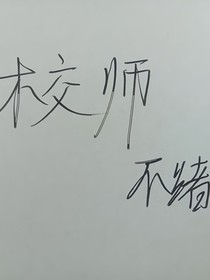 校师
不绪